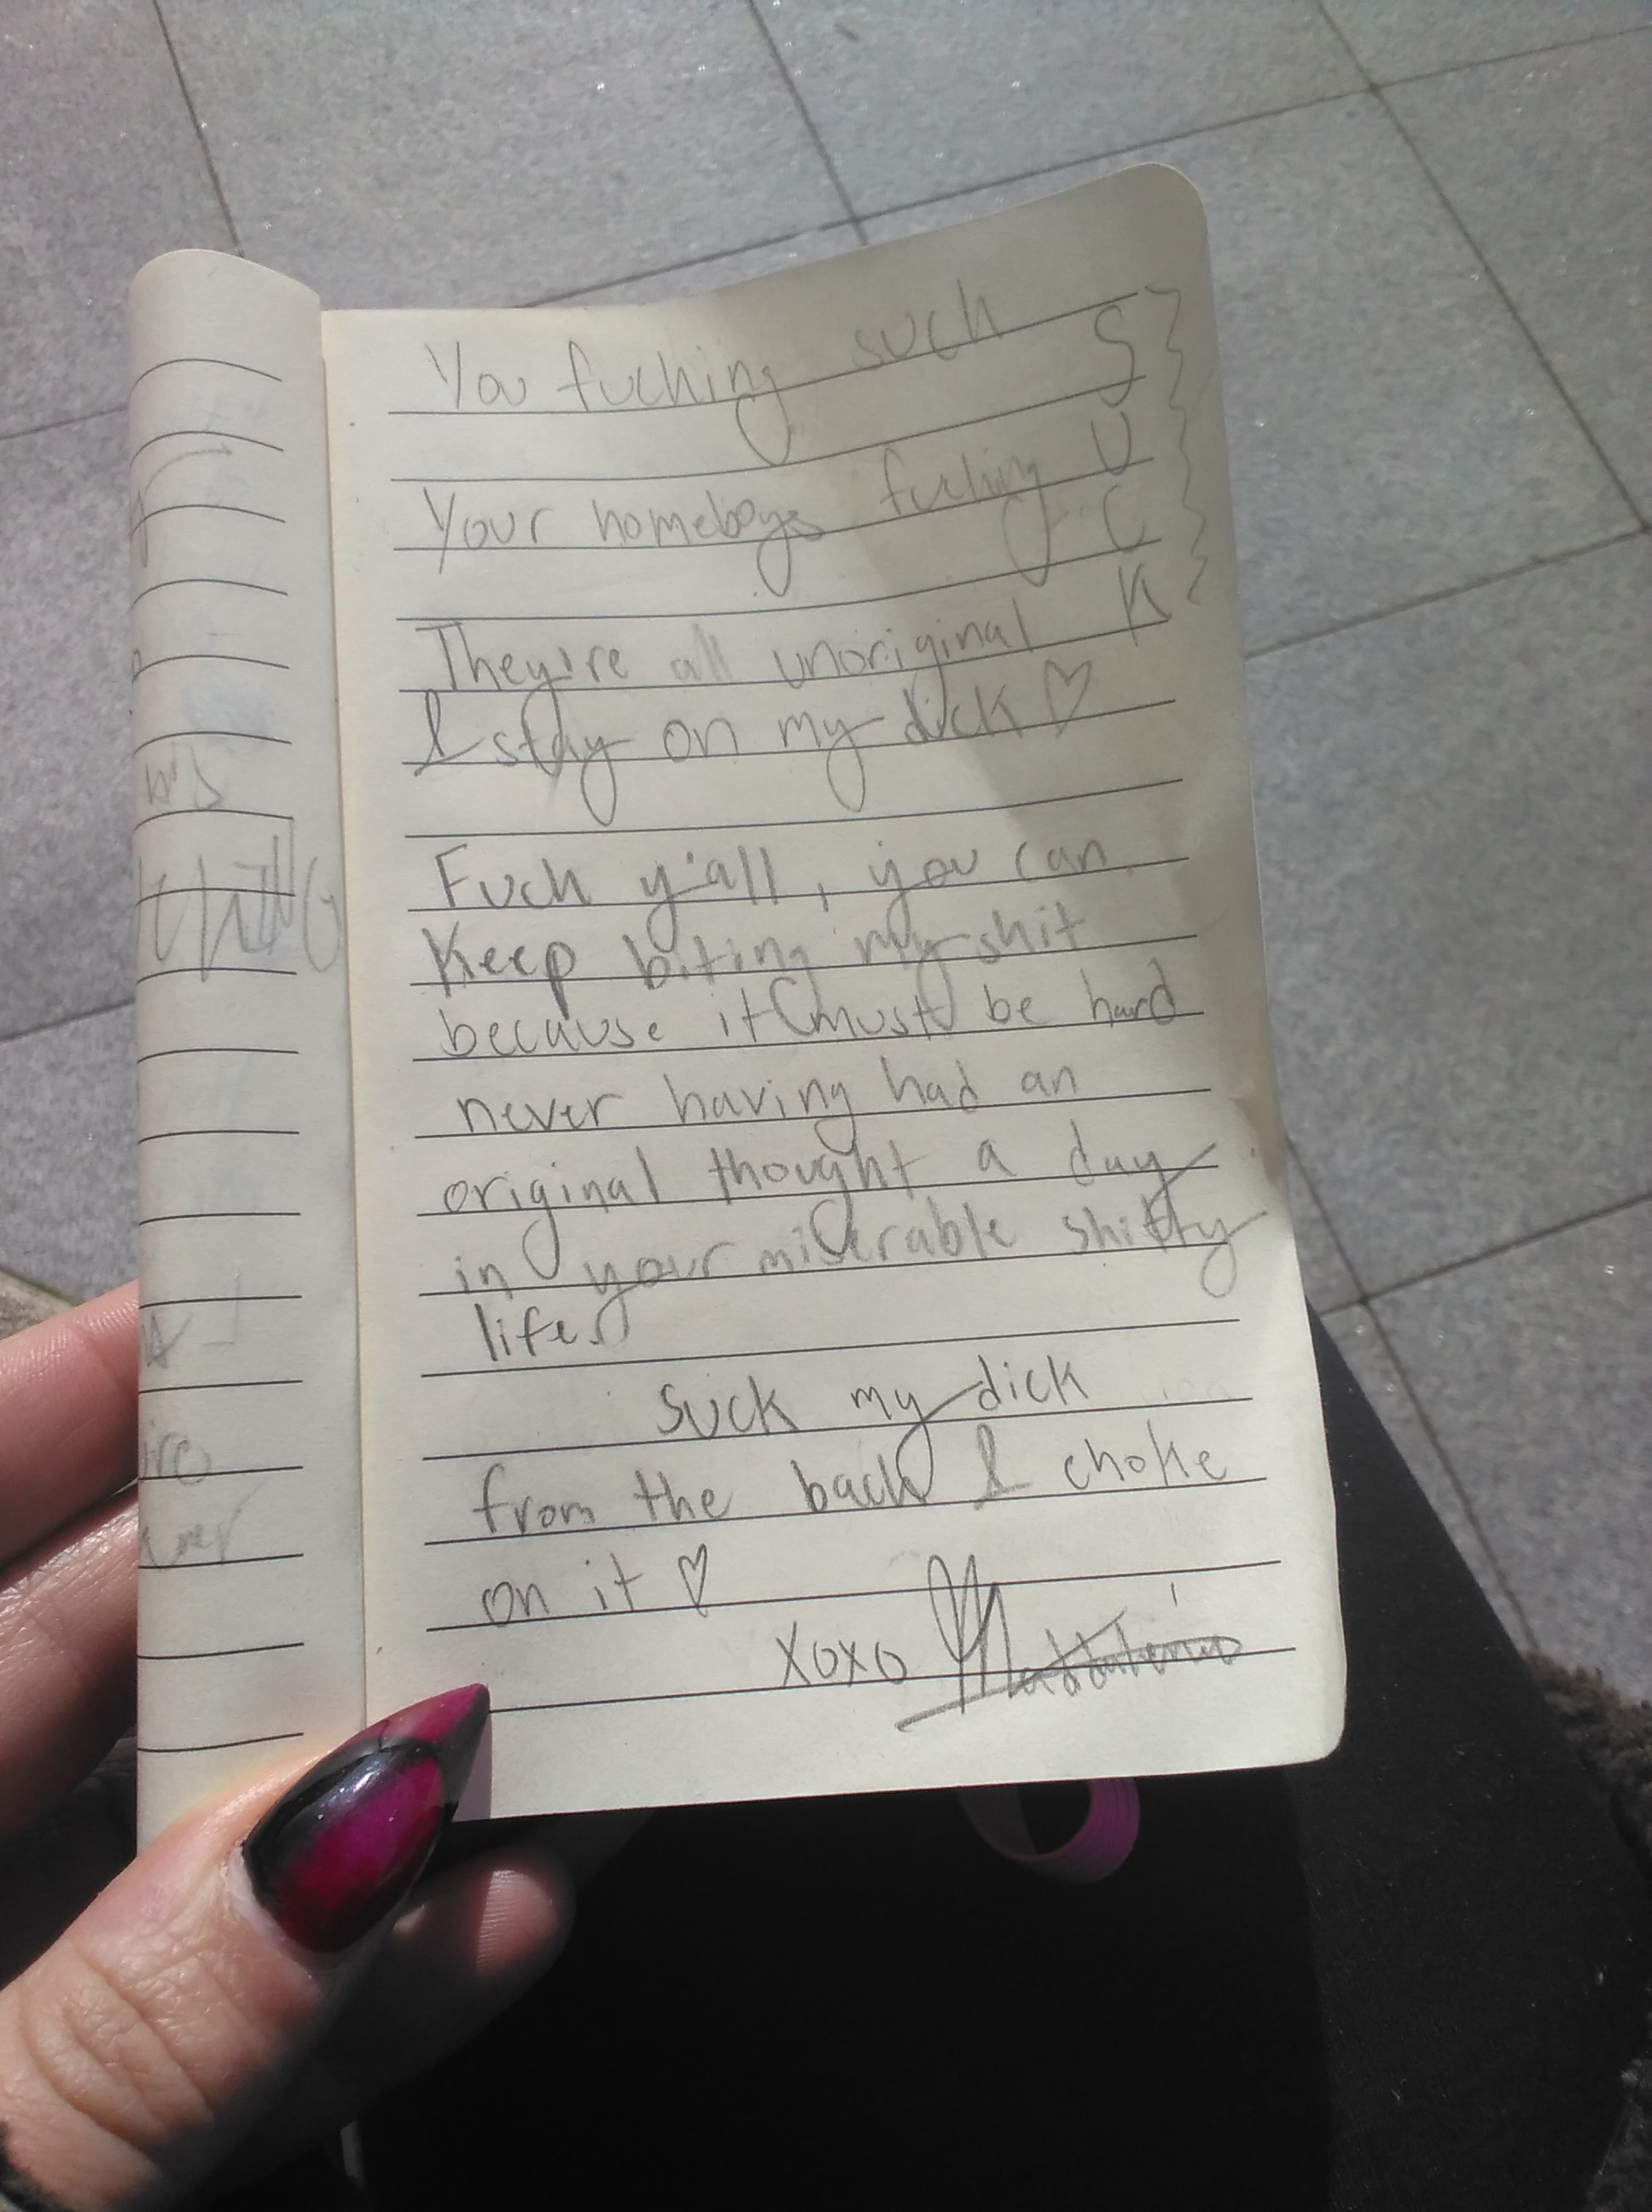 You fucking such
S
U
Your homeboys fucking
C
K
They're all unoriginal
& stay on my dick ♡
Fuck y'all, you can
Keep biting my shit
because it must be hard
never having had an
original thought a day
in your miserable shitty
life.
Suck my dick
from the back & choke
on it ♡
xoxo